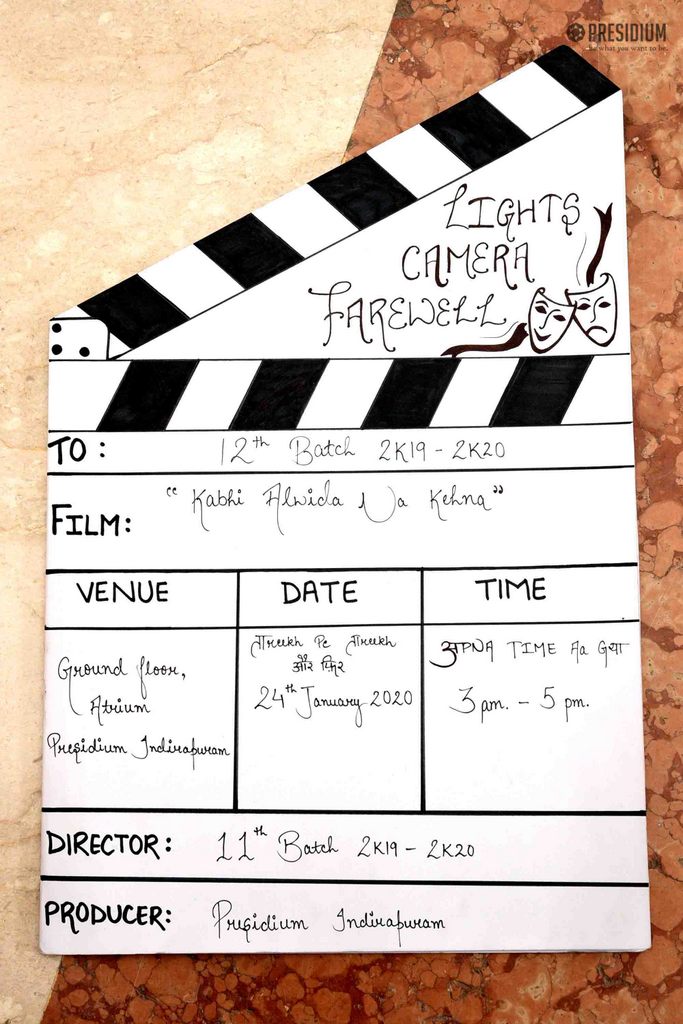 PRESIDIUM
Be what you want to be.
LIGHTS
CAMERA
FAREWELL
TO: 12th Batch 2K19 - 2K20
FILM: "Kabhi Alwida Na Kehna"
VENUE
DATE
TIME
Ground floor,
Atrium
Presidium Indirapuram
ताreekh Pe ताreekh
और फिर
24th January 2020
अPNA TIME Aa Gया
3 pm. - 5 pm.
DIRECTOR: 11th Batch 2K19 - 2K20
PRODUCER: Presidium Indirapuram